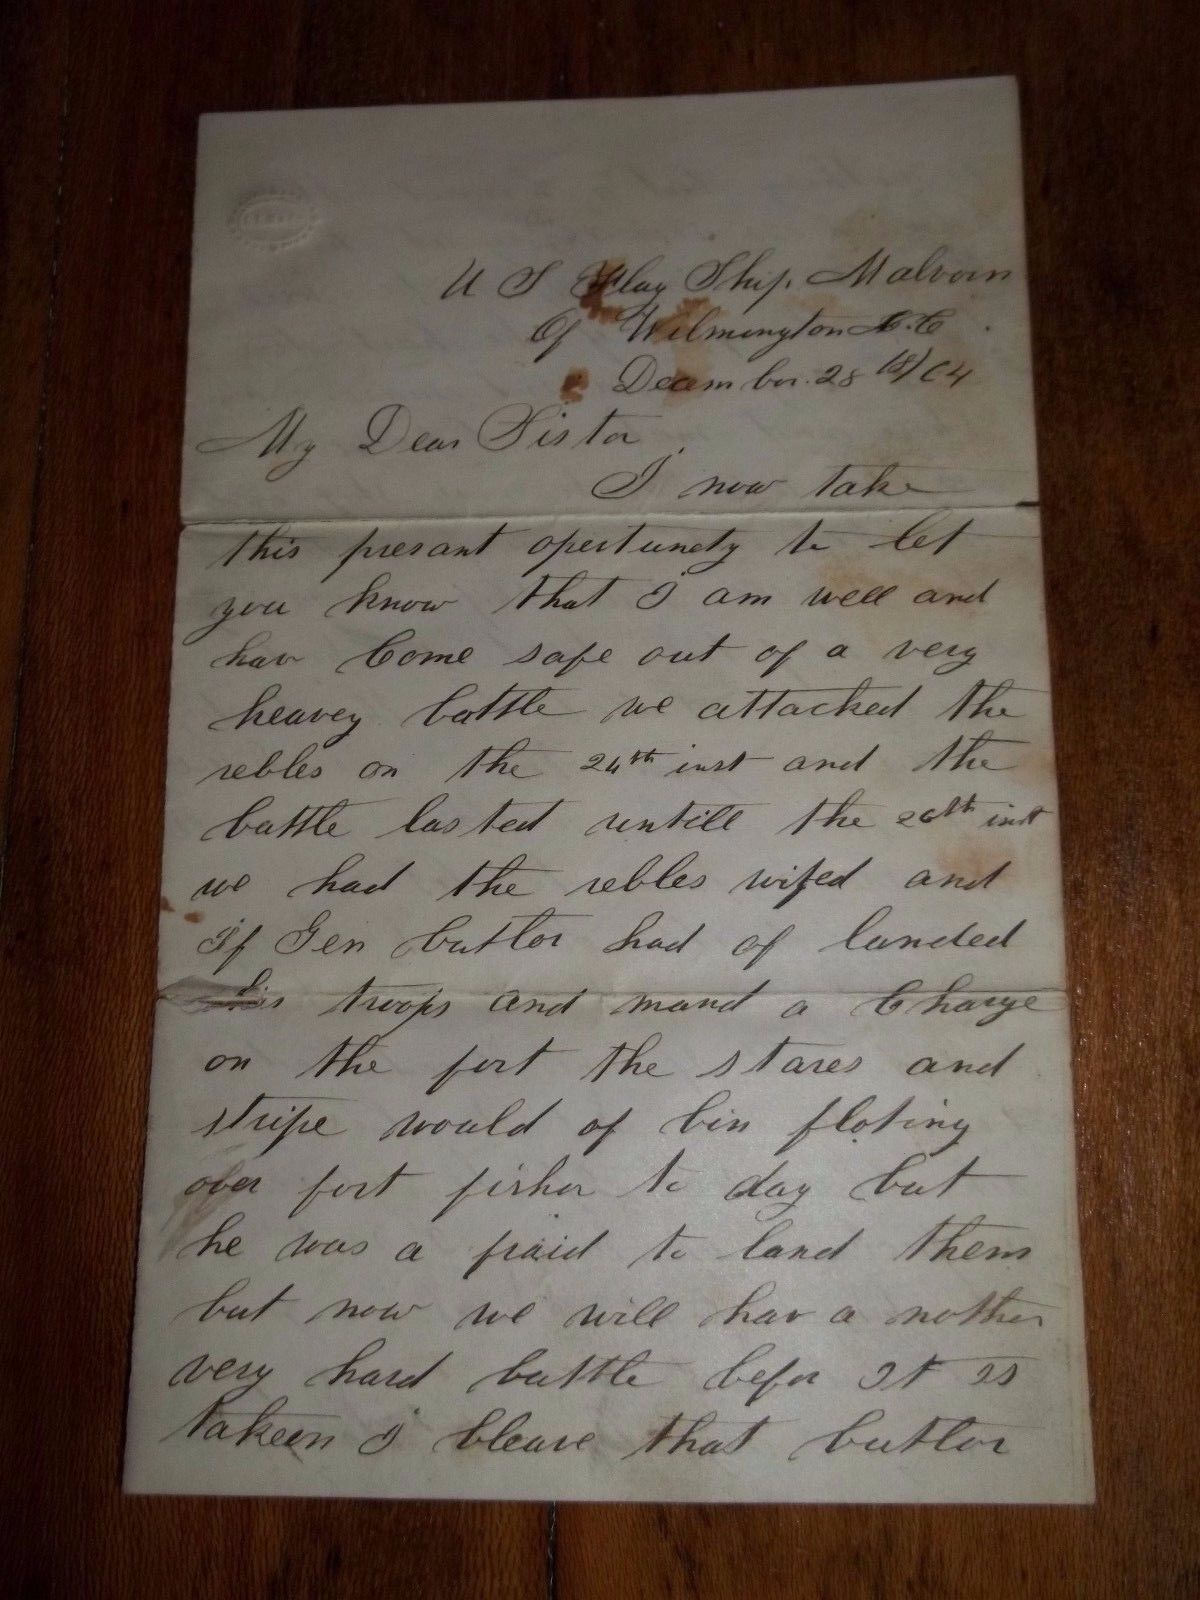 U S Flag Ship Malvorn
Of Wilmington N.C.
December. 28 18/64
My Dear Sistor
I now take
this presant opertunety to let
you know that I am well and
hav Come safe out of a very
heavey battle we attacked the
rebles on the 24th inst and the
battle lasted untill the 26th inst
we had the rebles wiped and
If Gen butlor had of landed
his troops and mand a Charge
on the fort the stares and
stripe would of bin floting
over fort fisher to day but
he was a fraid to land them
but now we will hav a nother
very hard battle befor It is
takeen I bleave that butlor